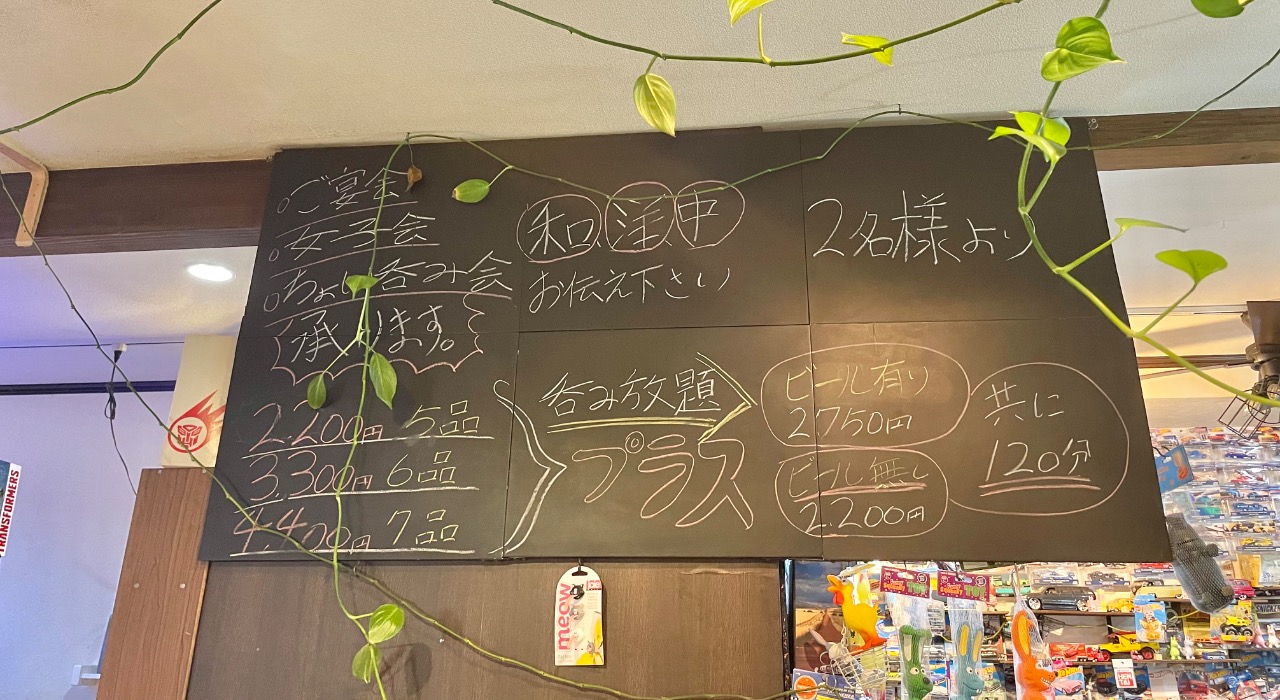 ご宴会
女子会
ちょい呑み会
承ります。
2.200円 5品
3.300円 6品
4.400円 7品
和 洋 中
お伝え下さい
2名様より
呑み放題
プラス
ビール有り
2750円
ビール無し
2.200円
共に
120分
TRANSFORMERS
meow
HENTAI